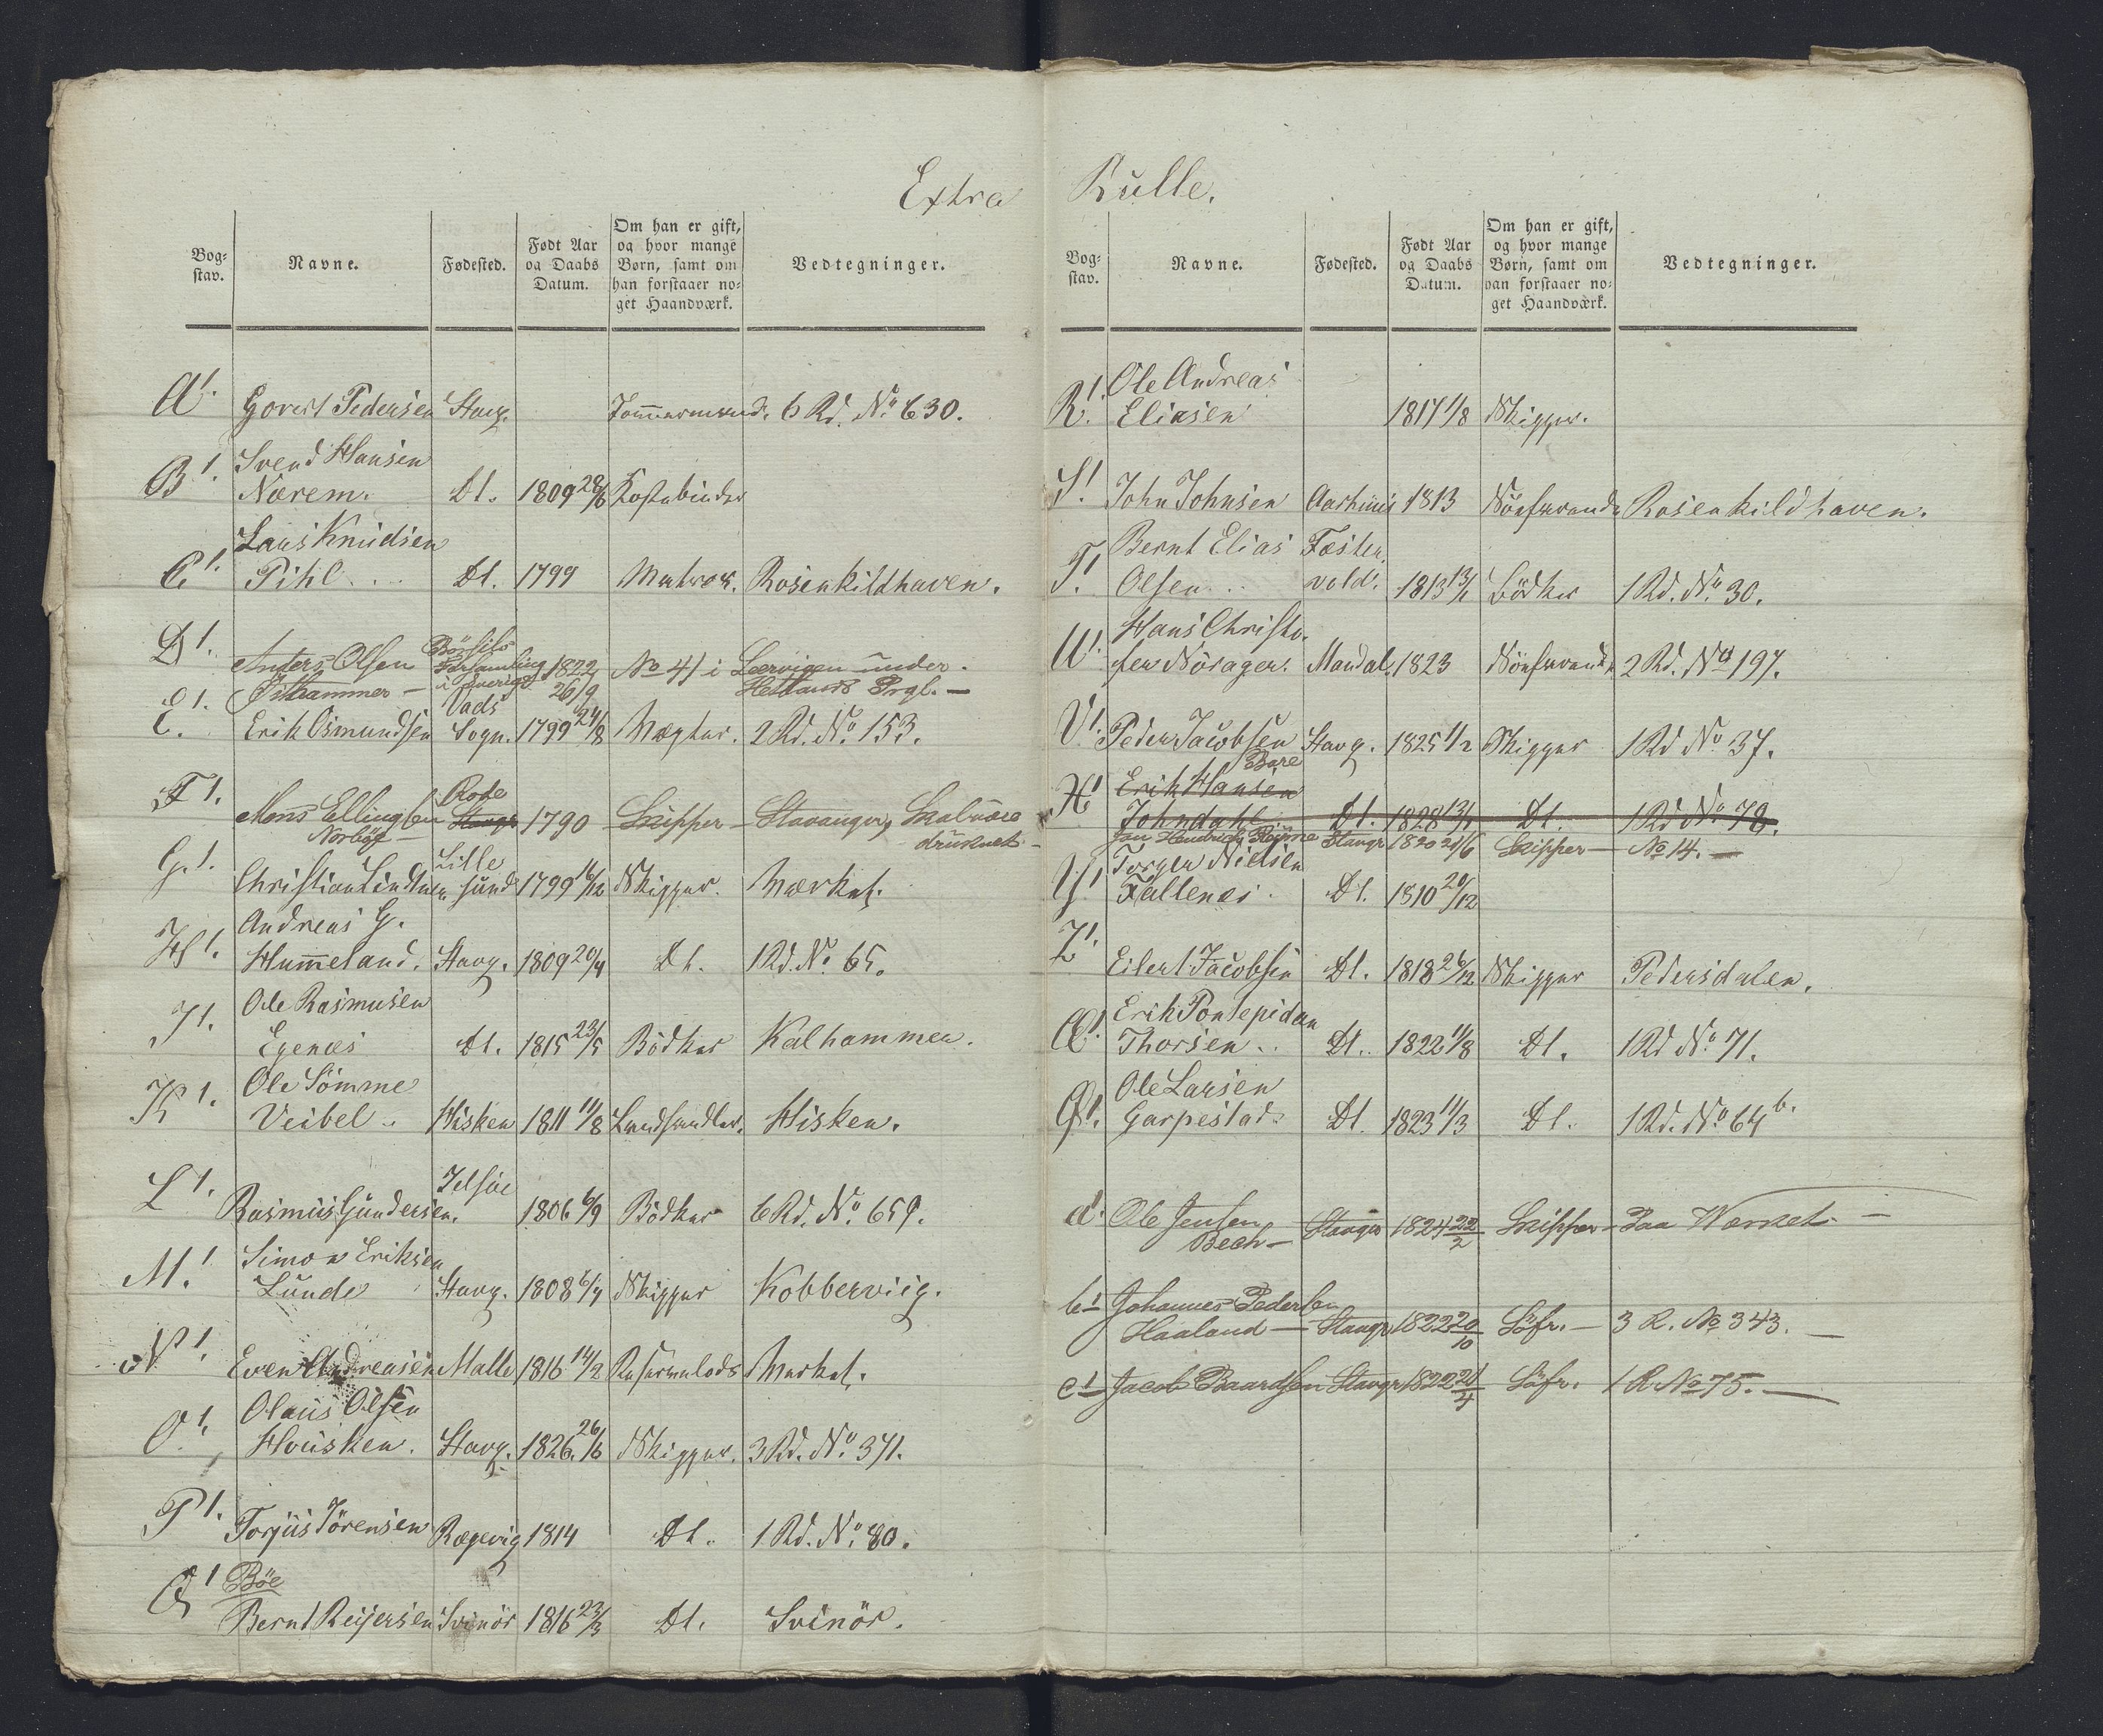 Extra Rulle.
Bog-
stav.
Navne.
Fødested.
Født Aar
og Daabs
Datum.
Om han er gift,
og hvor mange
Børn, samt om
han forstaaer no-
get Haandværk.
Vedtegninger.
A1. Govert Pedersen Stavg. Tømmermand. 6 Rd. No. 630.
Svend Hansen
B1. Nærem. Dt. 1809 28/6 Kostebinder
Lars Knudsen
C1. Pihl... Dt. 1799 Matros. Rosenkildhaven.
D1. Anders Olsen Forsamling 1822 No 41 i Leervigen under
Østhammer - i Sverige 26/9 Hetlands Prgl. -
Vads
E1. Erik Osmundsen Sogn. 1799 24/8 Vægter. 2 Rd. No. 153.
Rode
F1. Mons Ellingsen Stavgr 1790 Skipper - Stavanger, Skal være
Norbøg - druknet -
Lille
G.1. Christian Lindtner sund 1799 16/12 Skipper. Værket.
Andreas G.
H1. Hummeland. Stavg. 1809 20/4 Dt. 1 Rd. No. 65.
Ole Rasmusen
J1. Egenæs Dt. 1815 23/5 Bødker Kalhammer.
Ole Sömme
K1. Veibel.. Hisken 1811 11/8 Landhandler. Hisken.
Jelsøe
L1. Rasmus Gundersen. 1806 6/9 Bødker 6 Rd. No. 659.
Simon Eriksen
M.1 Lunde Stavg. 1808 6/4 Skipper Kobberviig.
N1. Even Andreasen Malle 1816 14/2 Reservelods Værket.
Olaus Olsen
O1. Housken. Stavg. 1826. 26/6 Skipper. 3 Rd. No. 371.
P1. Torjus Sörensen Rægevig 1814 Dt. 1 Rd. No. 80.
Q1 Böe
Bernt Reijersen Svinör 1816 23/3 Dt. Svinör.
Bog-
stav.
Navne.
Fødested.
Født Aar
og Daabs
Datum.
Om han er gift,
og hvor mange
Børn, samt om
han forstaaer no-
get Haandværk.
Vedtegninger.
Ole Andreas
R1. Eliasen 1817 1/8 Skipper.
S1. John Johnsen Aarhuus 1813 Søefarende Rosenkildhaven.
Bernt Elias Fæster
T1. Olsen... vold. 1813 13/1 Bödker 1 Rd. No. 30.
Hans Christo-
W1. fer Nörager. Mandal. 1823 Søefarende 2 Rd. No 197.
V1. Peder Jacobsen Stavg. 1825 1/2 Skipper 1 Rd No. 37.
Bare
X1 Erik Hansen
Johndahl Dt. 1828 13/1 Dt. 1 Rd No. 78.
Jan Hendrich Stavgr 1820 21/6 Skipper - No 14. -
Torger Nielsen
Y1 Tallenæs. Dt. 1810 20/12
Z1.
Eilert Jacobsen Dt. 1818 26/12 Skipper Pedersdalen.
Erik Pontepidan
Æ1. Thorsen.. Dt.. 1822 11/8 Dt. 1 Rd No. 71.
Ole Larsen
Ø1. Garpestad. Dt. 1823 11/3 Dt. 1 Rd. No. 64 b.
a1. Ole Jensen Stavgr 1824 22/2 Skipper - Paa Værket. -
Bech -
b1 Johannes Pedersen
Haaland - Stavgr 1822 20/10 Söfr. - 3 R. No 343. -
c1 Jacob Baardsen Stavgr 1822 21/4 Söfr. 1 R No 75. -